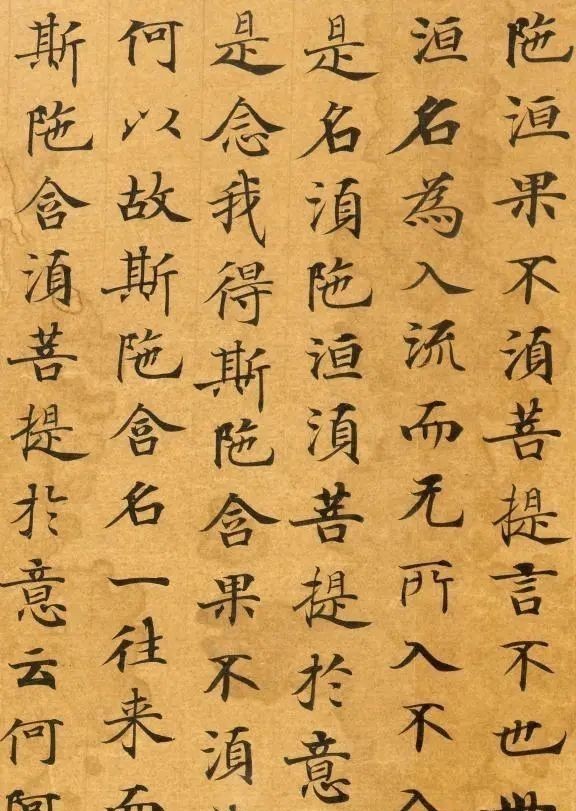 陁洹果不湏菩提言不也世
洹名為入流而无所入不入
是名湏陁洹湏菩提於意
是念我得斯陁含果不湏
何以故斯陁含名一往来而
斯陁含湏菩提於意云何阿